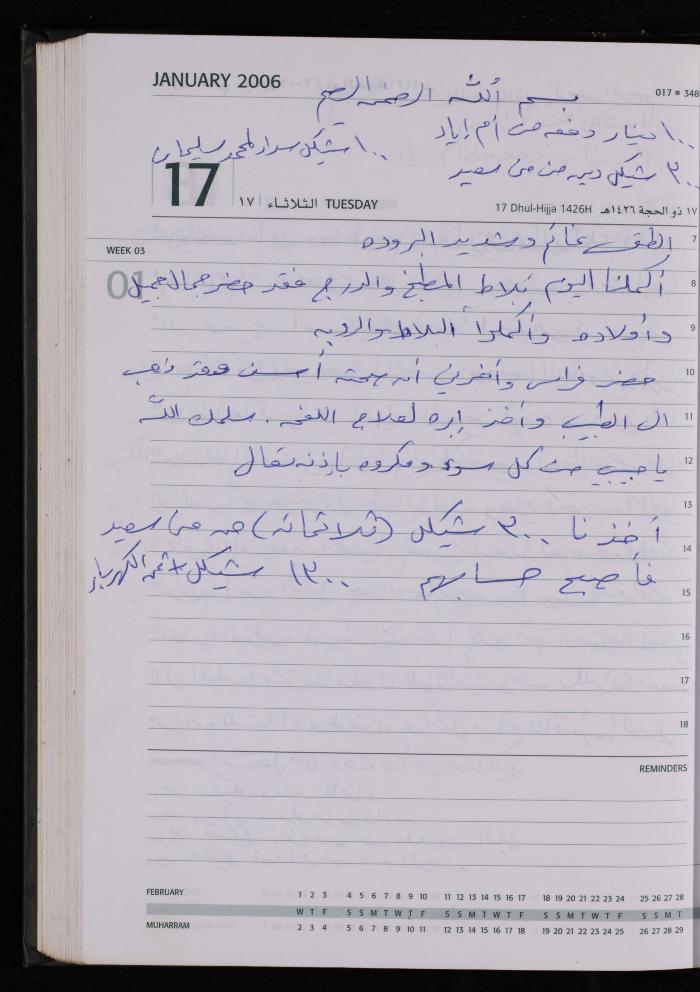 JANUARY 2006
017 ■ 348
بسم الله الرحمن الرحيم
١٠٠ دينار دفعه من أم إياد
١٠٠ شيكل سداد لمحمد سليمان
٣٠٠ شيكل دين من مي سعيد
17
١٧ الثلاثاء TUESDAY
17 Dhul-Hijja 1426H ١٧ ذو الحجة ١٤٢٦هـ
WEEK 03
7 الطقس غائم وشديد البروده
8 أكملنا اليوم بلاط المطبخ والدرج فقد حضر جمال جميل
9 وأولاده وأكملوا البلاط والروبه
10 حضر فراس وأخبرني أن صحته أحسن فقد ذهب
11 الى الطبيب وأخذ إبره لعلاج اللفحه. سلمك الله
12 يا حبيبي من كل سوء ومكروه بإذنه تعالى
13
أخذنا ٣٠٠ شيكل (ثلاثمائه) من مي سعيد
14
فأصبح حسابهم ١٣٠٠ شيكل + ثمن الكهرباء
15
16
17
18
REMINDERS
FEBRUARY 1 2 3 4 5 6 7 8 9 10 11 12 13 14 15 16 17 18 19 20 21 22 23 24 25 26 27 28
W T F S S M T W T F S S M T W T F S S M T W T F S S M T
MUHARRAM 2 3 4 5 6 7 8 9 10 11 12 13 14 15 16 17 18 19 20 21 22 23 24 25 26 27 28 29